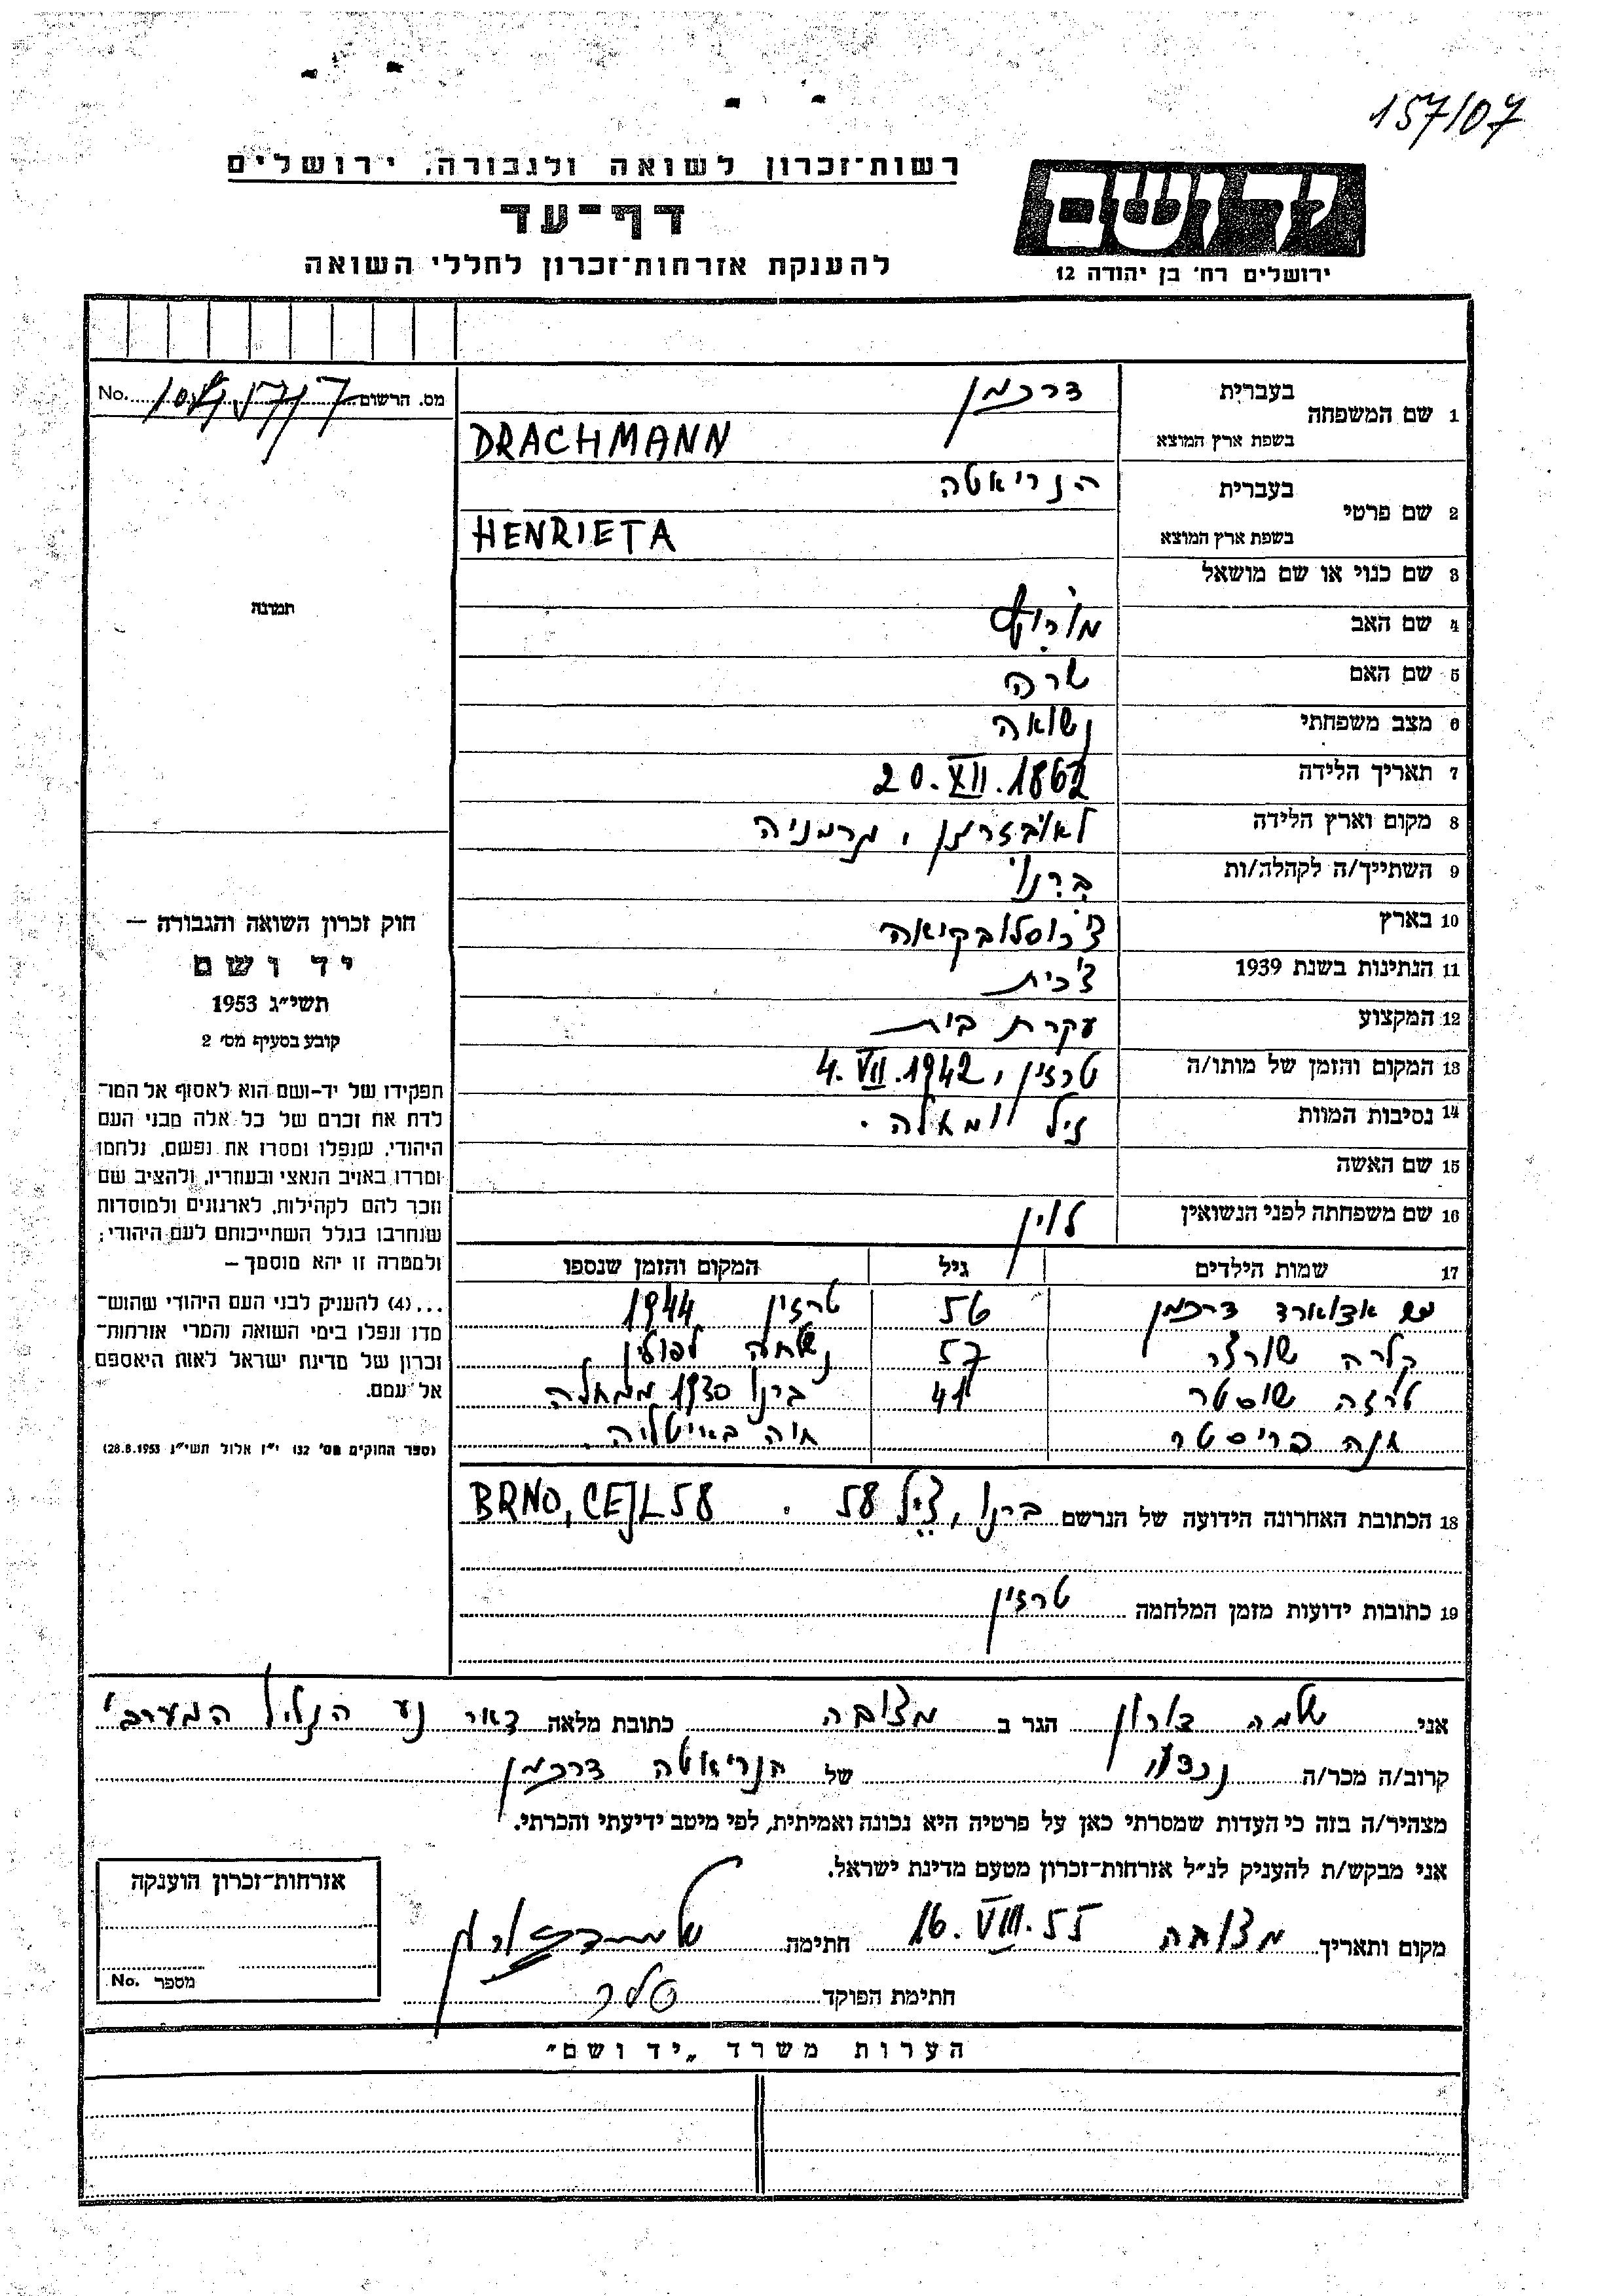 157/07
רשות־זכרון לשואה ולגבורה, ירושלים
דף־עד
להענקת אזרחות־זכרון לחללי השואה
יד ושם
ירושלים רח׳ בן יהודה 12
מס. הרשום No.
1 שם המשפחה
בעברית דרכמן
בשפת ארץ המוצא DRACHMANN
2 שם פרטי
בעברית הנריאטה
בשפת ארץ המוצא HENRIETA
3 שם כנוי או שם מושאל
4 שם האב מוריץ
5 שם האם שרה
6 מצב משפחתי נשואה
7 תאריך הלידה 20.XII.1862
8 מקום וארץ הלידה , גרמניה
9 השתייך/ה לקהלה/ות ברנו
10 בארץ צ׳כוסלובקיאה
11 הנתינות בשנת 1939 צ׳כית
12 המקצוע עקרת בית
13 המקום והזמן של מותו/ה טרזין, 4.VII.1942
14 נסיבות המוות גיל ומחלה.
15 שם האשה
16 שם משפחתה לפני הנשואין לוין
17 שמות הילדים גיל המקום והזמן שנספו
אדוארד דרכמן 56 טרזין 1944
קלרה שורצ 57 נשלחה לפולין
טרזה שוסטר 41 ברנו 1930 ממחלה
אנה פריסטר חיה באיטליה.
18 הכתובת האחרונה הידועה של הנרשם ברנו, צייל 58 . BRNO, CEJL 58
19 כתובות ידועות מזמן המלחמה טרזין
תמונה
חוק זכרון השואה והגבורה —
יד ושם
תשי״ג 1953
קובע בסעיף מס׳ 2
תפקידו של יד-ושם הוא לאסוף אל המו־
לדת את זכרם של כל אלה מבני העם
היהודי, שנפלו ומסרו את נפשם, נלחמו
ומרדו באויב הנאצי ובעוזריו, ולהציב שם
וזכר להם לקהילות, לארגונים ולמוסדות
שנחרבו בגלל השתייכותם לעם היהודי;
ולמטרה זו יהא מוסמך —
...(4) להענין לבני העם היהודי שהוש־
מדו ונפלו בימי השואה והמרי אזרחות־
זכרון של מדינת ישראל לאות היאספם
אל עמם.
(ספר החוקים מס׳ 132 י״ז אלול תשי״ג 28.8.1953)
אני שלמה דורון הגר ב מצובה כתובת מלאה דאר נע הגליל המערבי
קרוב/ה מכר/ה נכדו של הנריאטה דרכמן
מצהיר/ה בזה כי העדות שמסרתי כאן על פרטיה היא נכונה ואמיתית, לפי מיטב ידיעתי והכרתי.
אני מבקש/ת להעניק לנ״ל אזרחות־זכרון מטעם מדינת ישראל.
מקום ותאריך מצובה 16.VIII.55 חתימה
חתימת הפוקד
אזרחות־זכרון הוענקה
מספר No.
הערות משרד „יד ושם״